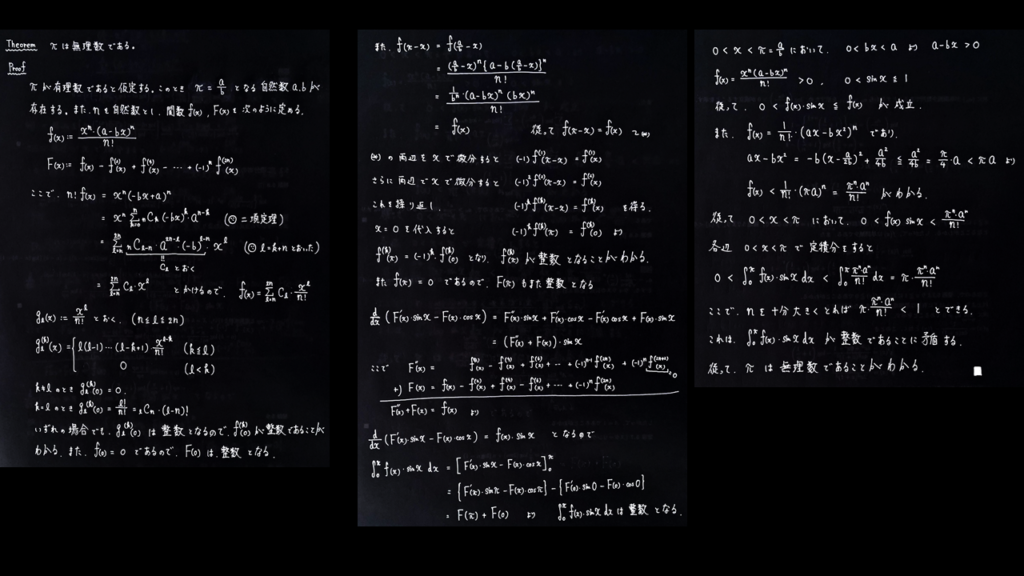 Theorem πは無理数である。
Proof
πが有理数であると仮定する。このとき π = a/b となる自然数 a, b が
存在する。また、nを自然数とし、関数 f(x), F(x) を次のように定める。
f(x) := x^n・(a-bx)^n / n!
F(x) := f(x) - f^(2)(x) + f^(4)(x) - … + (-1)^n f^(2n)(x)
ここで、 n! f(x) = x^n (-bx+a)^n
= x^n Σ_{k=0}^{n} nCk (-bx)^k a^{n-k} (∵ 二項定理)
= Σ_{l=n}^{2n} nC_{l-n}・a^{2n-l}・(-b)^{l-n}・x^l (∵ l=k+n とおいた)
‖
C_l とおく
= Σ_{l=n}^{2n} C_l・x^l とかけるので、 f(x) = Σ_{l=n}^{2n} C_l・x^l/n!
g_l(x) := x^l/n! とおく、 (n≦l≦2n)
g_l^(k)(x) = { l(l-1)…(l-k+1)・x^{l-k}/n! (k≦l)
0 (l<k)
k≠l のとき g_l^(k)(0) = 0.
k=l のとき g_l^(k)(0) = l!/n! = lCn・(l-n)!
いずれの場合でも、g_l^(k)(0) は整数となるので、f^(k)(0) が整数であることが
わかる。また、f(0) = 0 であるので、F(0) は整数となる。
また、 f(π-x) = f(a/b-x)
= (a/b-x)^n {a-b(a/b-x)}^n / n!
= 1/b^n・(a-bx)^n (bx)^n / n!
= f(x) 従って f(π-x) = f(x) …(*)
(*) の両辺を x で微分すると (-1)・f^(1)(π-x) = f^(1)(x)
さらに両辺で x で微分すると (-1)^2 f^(2)(π-x) = f^(2)(x)
これを繰り返し、 (-1)^k f^(k)(π-x) = f^(k)(x) を得る。
x=0 を代入すると (-1)^k f^(k)(π) = f^(k)(0) より
f^(k)(π) = (-1)^k・f^(k)(0) となり、f^(k)(π) が整数となることがわかる。
また f(π) = 0 であるので、F(π) もまた整数となる
d/dx (F'(x)・sinx - F(x)・cosx) = F''(x)・sinx + F'(x)・cosx - F'(x)・cosx + F(x)・sinx
= (F''(x) + F(x))・sinx
ここで F''(x) = f^(2)(x) - f^(4)(x) + f^(6)(x) + … + (-1)^{n-1} f^(2n)(x) + (-1)^n f^(2n+2)(x) 0
+) F(x) = f(x) - f^(2)(x) + f^(4)(x) - f^(6)(x) + … + (-1)^n f^(2n)(x)
F''(x) + F(x) = f(x) より
d/dx (F'(x)・sinx - F(x)・cosx) = f(x)・sinx となるので
∫_0^π f(x)・sinx dx = [F'(x)・sinx - F(x)・cosx]_0^π
= {F'(π)・sinπ - F(π)・cosπ} - {F'(0)・sin0 - F(0)・cos0}
= F(π) + F(0) より ∫_0^π f(x)・sinx dx は整数となる.
0 < x < π = a/b において、 0 < bx < a より a-bx > 0
f(x) = x^n(a-bx)^n / n! > 0 、 0 < sinx ≦ 1
従って、 0 < f(x)・sinx ≦ f(x) が成立.
また、 f(x) = 1/n!・(ax-bx²)^n であり、
ax-bx² = -b(x - a/2b)² + a²/4b ≦ a²/4b = π/4・a < πa より
f(x) < 1/n!・(πa)^n = π^n・a^n / n! がわかる。
従って 0 < x < π において、 0 < f(x) sinx < π^n・a^n / n!
各辺 0 < x < π で定積分をすると
0 < ∫_0^π f(x)・sinx dx < ∫_0^π π^n a^n / n! dx = π・π^n・a^n / n!
ここで、nを十分大きくとれば π・π^n・a^n / n! < 1 とできる。
これは、∫_0^π f(x)・sinx dx が整数であることに矛盾する。
従って、πは無理数であることがわかる。